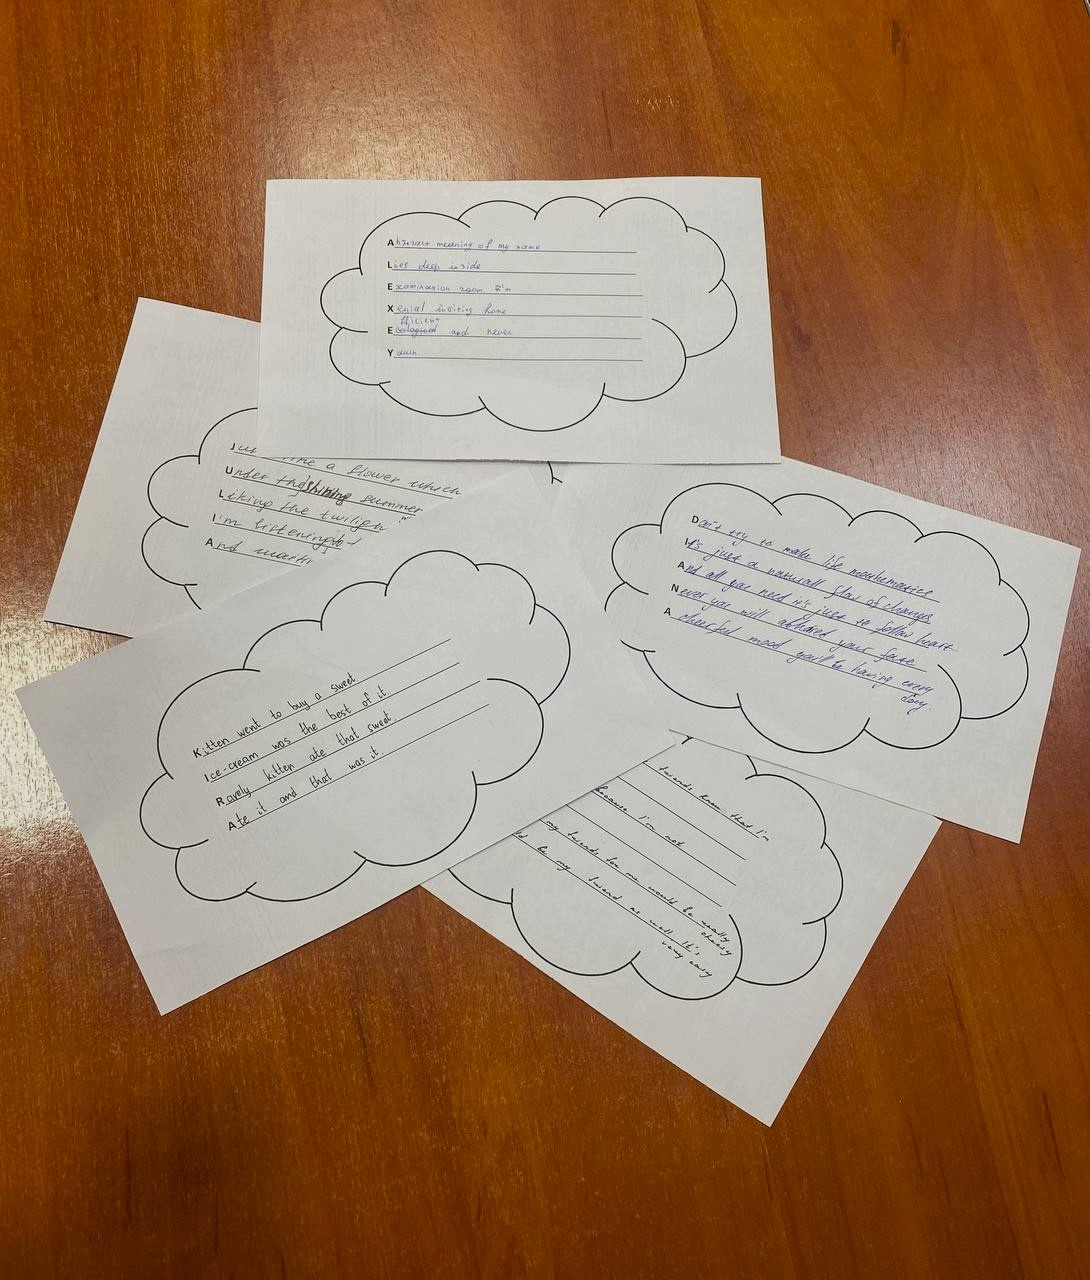 Abstract meaning of my name
Lies deep inside
Examination room I'm
Xenial inviting home
Efficient
and never
Yawn
like a flower which
Under the shining summer
Liking the twilight
I'm listening to
And
Don't try to make life mathematics
It's just a naturall flow of changes
And all you need it's just to follow heart
Never you will your
A cheerful mood you'll be having every
day.
Kitten went to buy a sweet
Ice-cream was the best of it.
Rarely kitten ate that sweet.
Ate it and that was it.
friends know that I'm
because I'm not
my friends for me would be really
cheesy
be my friend as well It's
very easy